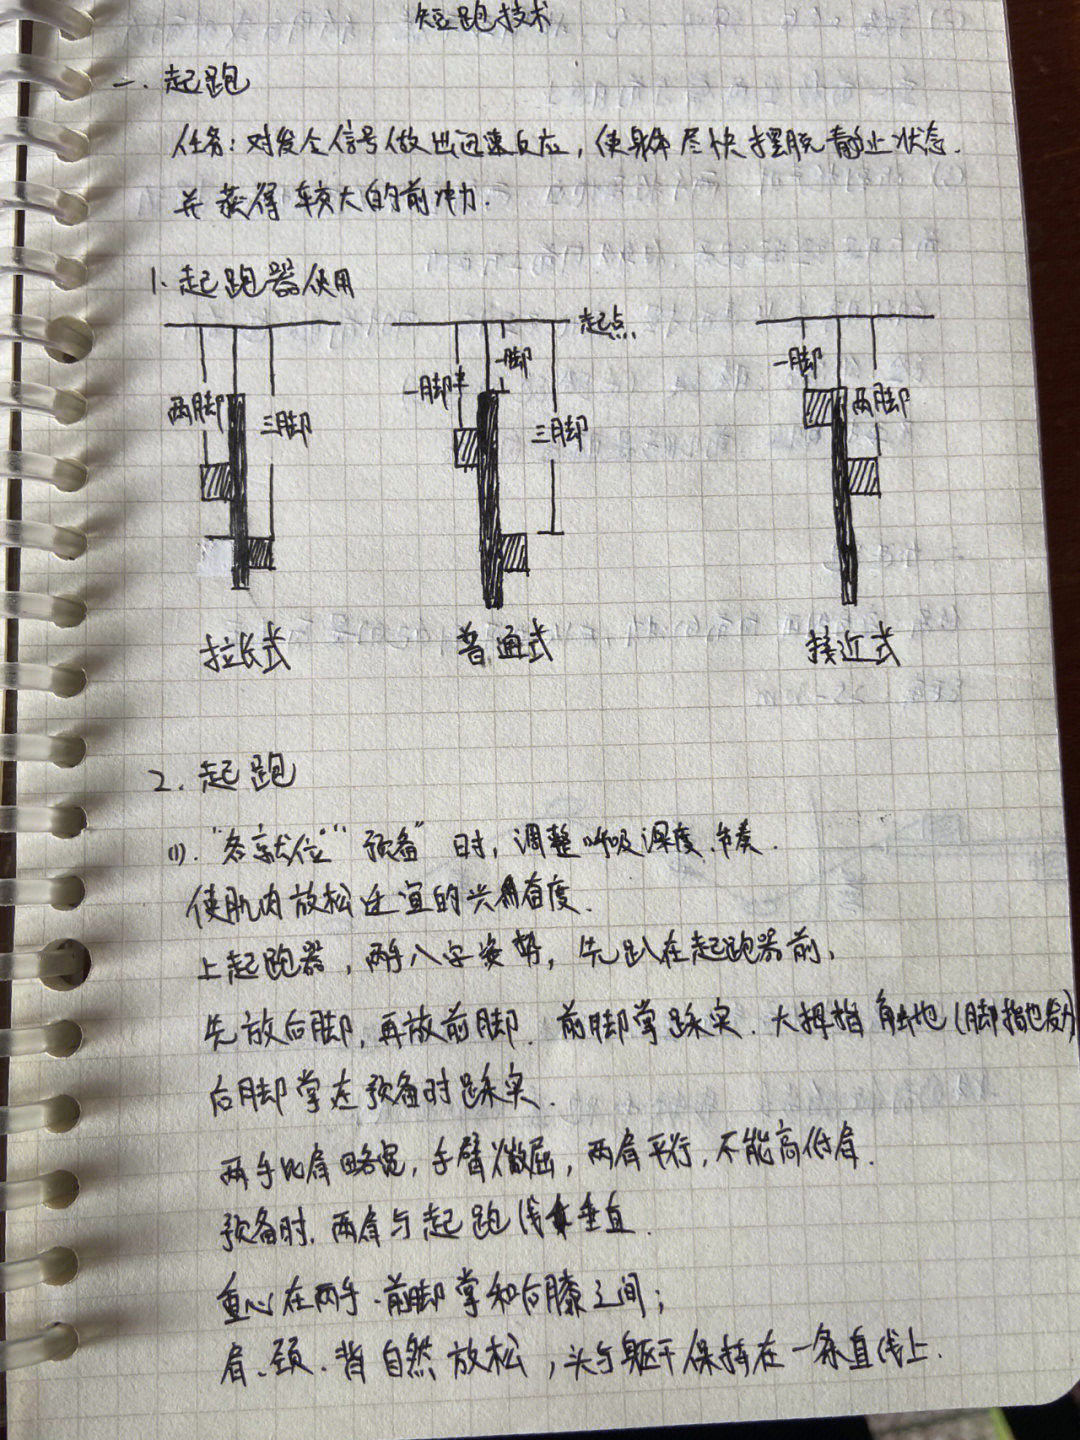 短跑技术
一. 起跑
任务:对发令信号做出迅速反应,使身体尽快摆脱静止状态.
并获得较大的前冲力.
1. 起跑器使用
起点
两脚 三脚
一脚半 一脚 三脚
一脚 两脚
拉长式 普通式 接近式
2. 起跑
(1). "各就位""预备"时,调整呼吸深度、节奏.
使肌肉放松适宜的兴奋度.
上起跑器,两手八字姿势,先趴在起跑器前,
先放后脚,再放前脚. 前脚掌踩实. 大拇指 触地(脚指也发力)
后脚掌在预备时踩实.
两手比肩略宽,手臂微屈,两肩平行,不能高低肩.
预备时. 两肩与起跑线垂直.
重心在两手、前脚掌和后膝之间;
肩、颈、背自然放松,头与躯干保持在一条直线上.